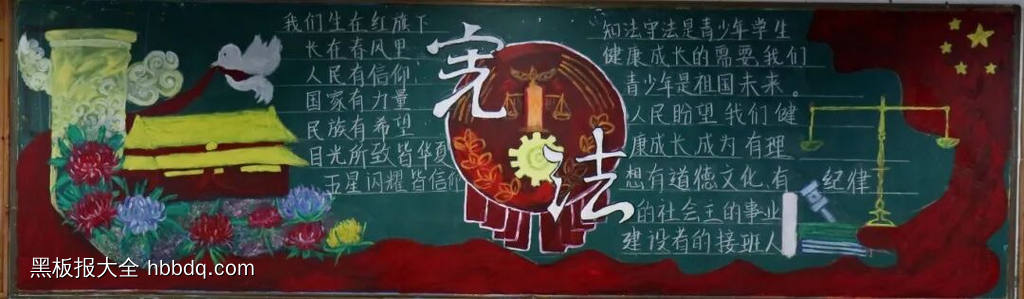 我们生在红旗下
长在春风里
人民有信仰
国家有力量
民族有希望
目光所致皆华夏
五星闪耀皆信仰
宪
法
知法守法是青少年学生
健康成长的需要我们
青少年是祖国未来。
人民盼望我们健
康成长成为有理
想有道德文化、有纪律
的社会主的事业
建设者的接班人
黑板报大全 hbbdq.com